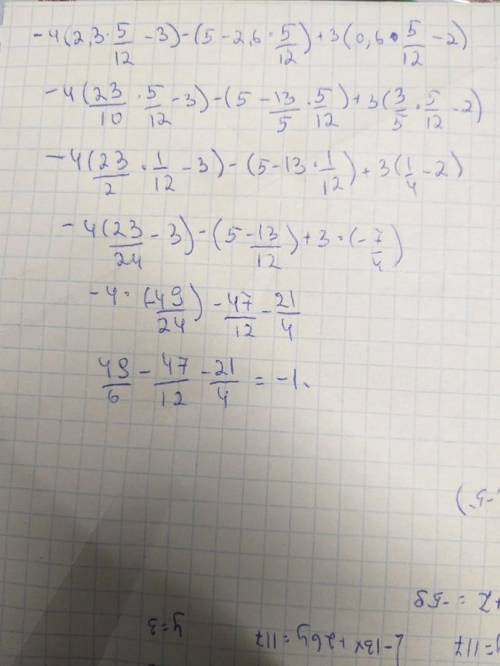 -4(2,3·5/12 -3)-(5-2,6·5/12)+3(0,6·5/12 -2)
-4(23/10·5/12 -3)-(5-13/5·5/12)+3(3/5·5/12 -2)
-4(23/2·1/12 -3)-(5-13·1/12)+3(1/4 -2)
-4(23/24 -3)-(5-13/12)+3·(-7/4)
-4·(-49/24)-47/12-21/4
49/6-47/12-21/4=-1.
-5)
= -58
=117
{-13x+26y=117
y=3